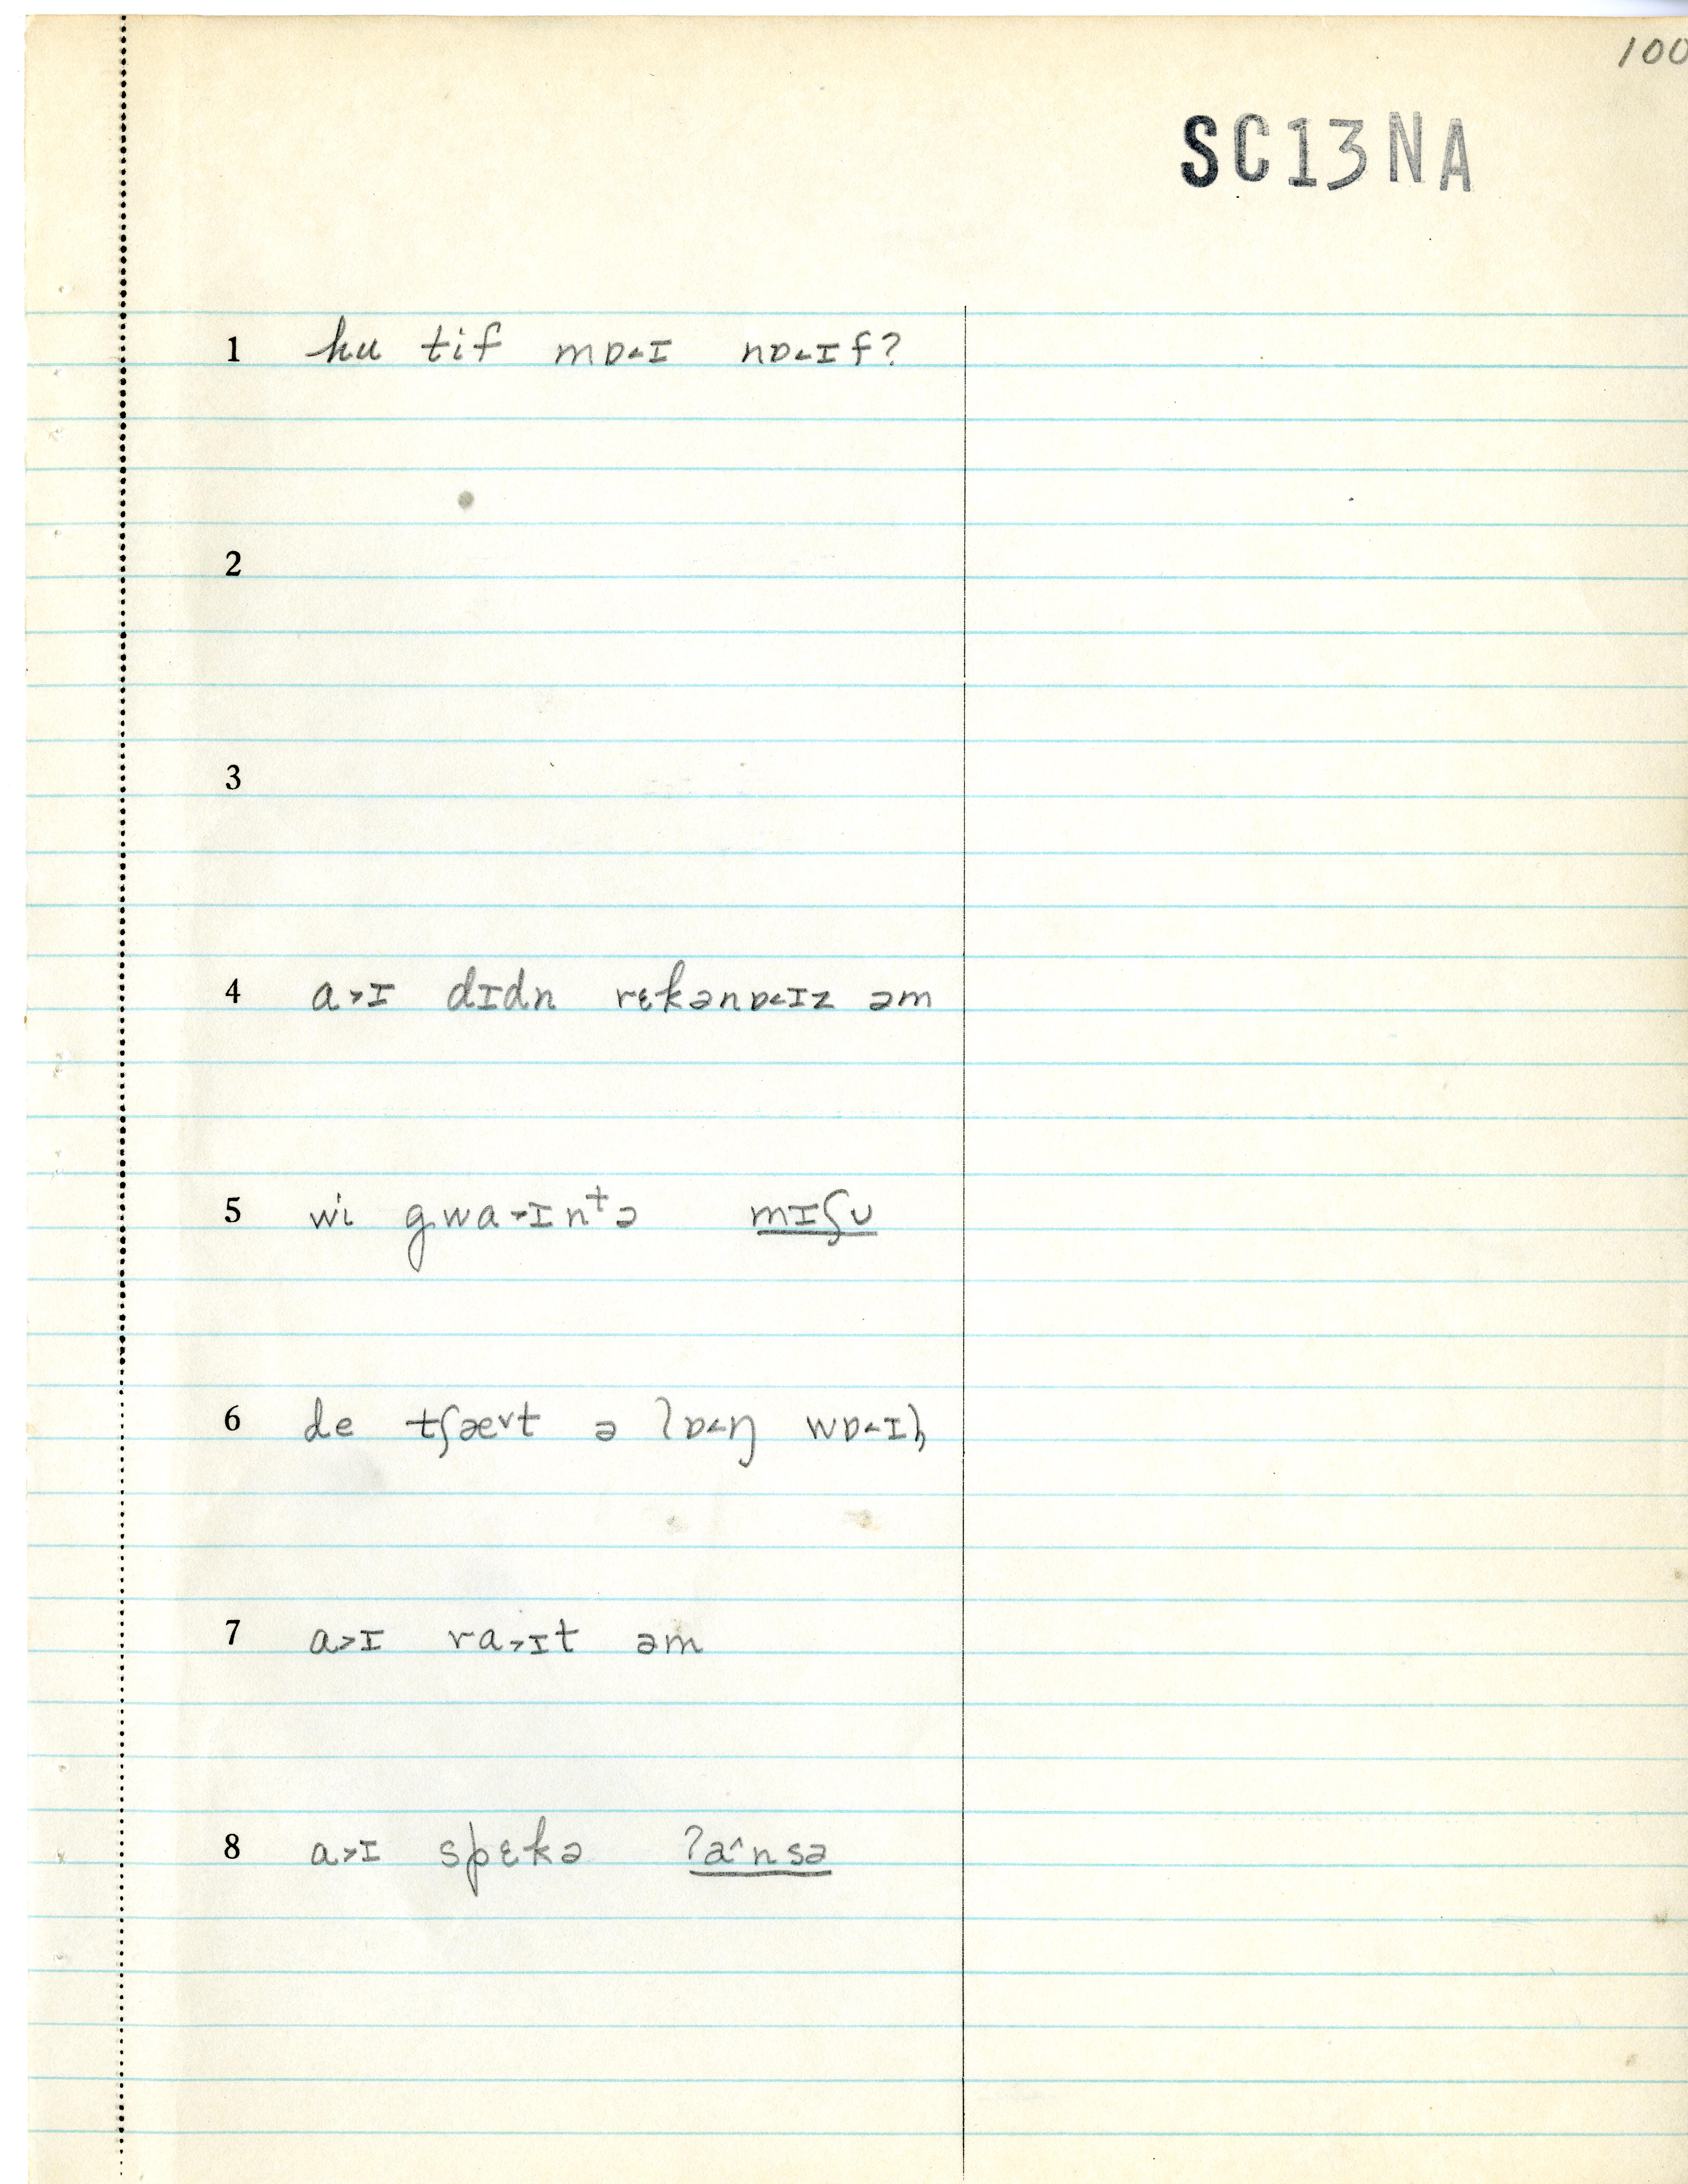 100
SC13NA
1 hu tif mɒ˂ɪ nɒ˂ɪf?
2
3
4 a˃ɪ dɪdn rɛkənɒ˂ɪz əm
5 wi gwa˃ɪnᵗə mɪʃʊ
6 de tʃævt ə lɒ˂ŋ wɒ˂ɪɫ
7 a˃ɪ ra˃ɪt əm
8 a˃ɪ spɛkə ʔa^nsə